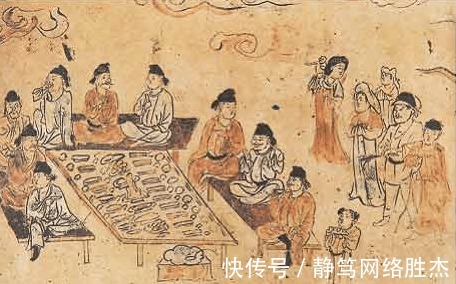 快传号 / 静笃网络胜杰